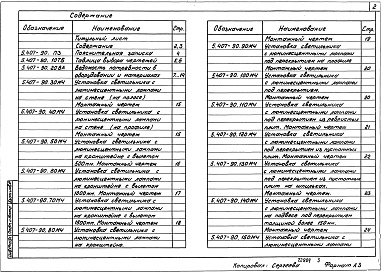 2
Содержание
Обозначение
Наименование
Стр.
Титульный лист
Содержание 2,3
5.407-90. ПЗ Пояснительная записка 4
5.407-90. 10ТБ Таблица выбора чертежей 5,6
5.407-90. 20ВА Ведомость потребности в
оборудовании и материалах 7..14
5.407-90. 30МЧ Установка светильника с
люминесцентными лампами
на стене (на полосе)
Монтажный чертеж 15
5.407-90. 40МЧ Установка светильника с
люминесцентными лампами
на стене (на профиле)
Монтажный чертеж 15
5.407-90. 50МЧ Установка светильника с
люминесцентными лампами
на кронштейне с вылетом
500мм. Монтажный чертеж 16
5.407-90. 60МЧ Установка светильника с
люминесцентными лампами
на кронштейне с вылетом
800мм. Монтажный чертеж 17
5.407-90. 70МЧ Установка светильника с
люминесцентными лампами
на кронштейне с вылетом
1100мм. Монтажный чертеж 18
5.407-90. 80МЧ Установка светильника с
люминесцентными лампами
на кронштейне.
Обозначение
Наименование
Стр.
Монтажный чертеж 19
5.407-90. 90МЧ Установка светильника
с люминесцентными лампами
под перекрытием на профиле
Монтажный чертеж 20
5.407-90. 100МЧ Установка светильника
с люминесцентными лампами
под перекрытием.
Монтажный чертеж 20
5.407-90. 110МЧ Установка светильника
с люминесцентными лампами
под перекрытием из ребристых
плит. Монтажный чертеж 21
5.407-90. 120МЧ Установка светильника
с люминесцентными лампами
под перекрытием из пустотных
плит. Монтажный чертеж 22
5.407-90. 130МЧ Установка светильника
с люминесцентными лампами
под перекрытием из пустотных
плит на штырях.
Монтажный чертеж 23
5.407-90. 140МЧ Установка светильника
с люминесцентными лампами
на подвесе под перекрытием
толщиной более 150мм.
Монтажный чертеж 24
5.407-90. 150МЧ Установка светильника
с люминесцентными лампами
22884 3
Копировал: Сергеева Формат А3